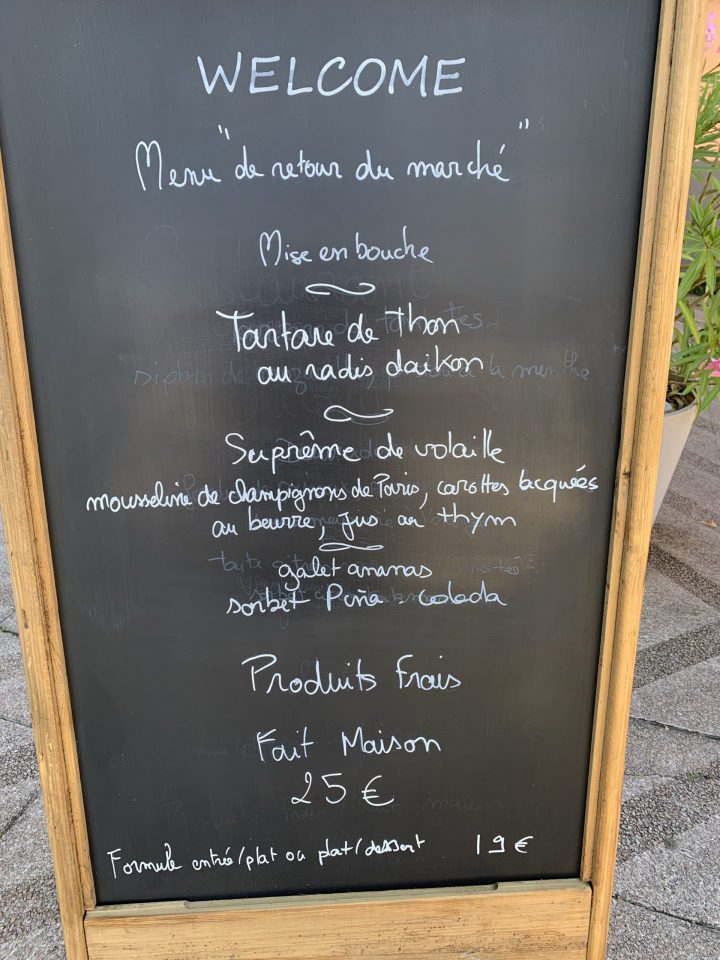 WELCOME
Menu "de retour du marché"
Mise en bouche
Tartare de Thon
au radis daikon
Suprême de volaille
mousseline de champignons de Paris, carottes lacquées
au beurre, jus au thym
galet ananas
sorbet Piña-colada
Produits frais
Fait Maison
25 €
Formule entrée/plat ou plat/dessert 19 €